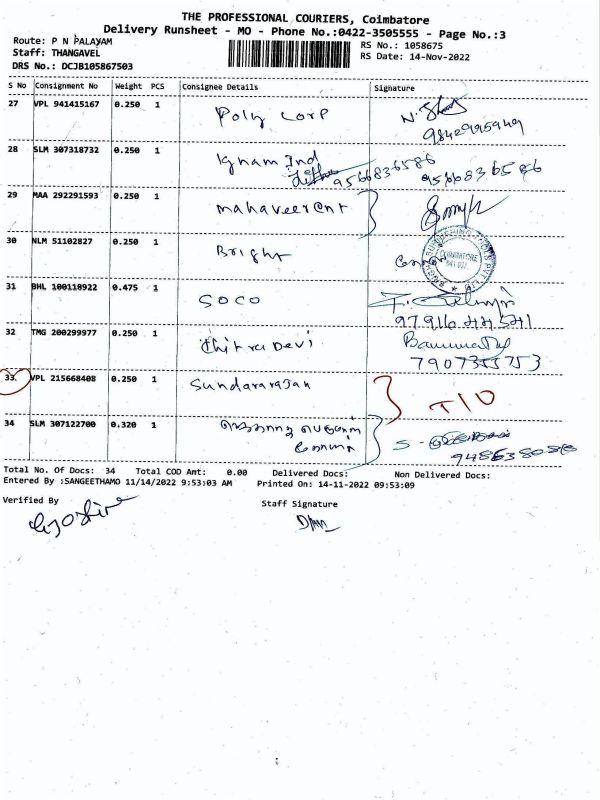 THE PROFESSIONAL COURIERS, Coimbatore
Delivery Runsheet - MO - Phone No.:0422-3505555 - Page No.:3
Route: P N PALAYAM
Staff: THANGAVEL
DRS No.: DCJB105867503
RS No.: 1058675
RS Date: 14-Nov-2022
S No Consignment No Weight PCS Consignee Details Signature
27 VPL 941415167 0.250 1 Poly corp
9842995949
28 SLM 307318732 0.250 1 Ignam Ind
9566836586 9566836586
29 MAA 292291593 0.250 1 mahaveer ent
30 NLM 51102827 0.250 1 Bright
COIMBATORE
31 BHL 100118922 0.475 1 SOCO
32 TMG 200299977 0.250 1 Chitra Devi
7907355753
33 VPL 215668408 0.250 1 Sundararajan
T/O
34 SLM 307122700 0.320 1
Total No. Of Docs: 34 Total COD Amt: 0.00 Delivered Docs: Non Delivered Docs:
Entered By :SANGEETHAMO 11/14/2022 9:53:03 AM Printed On: 14-11-2022 09:53:09
Verified By
Staff Signature